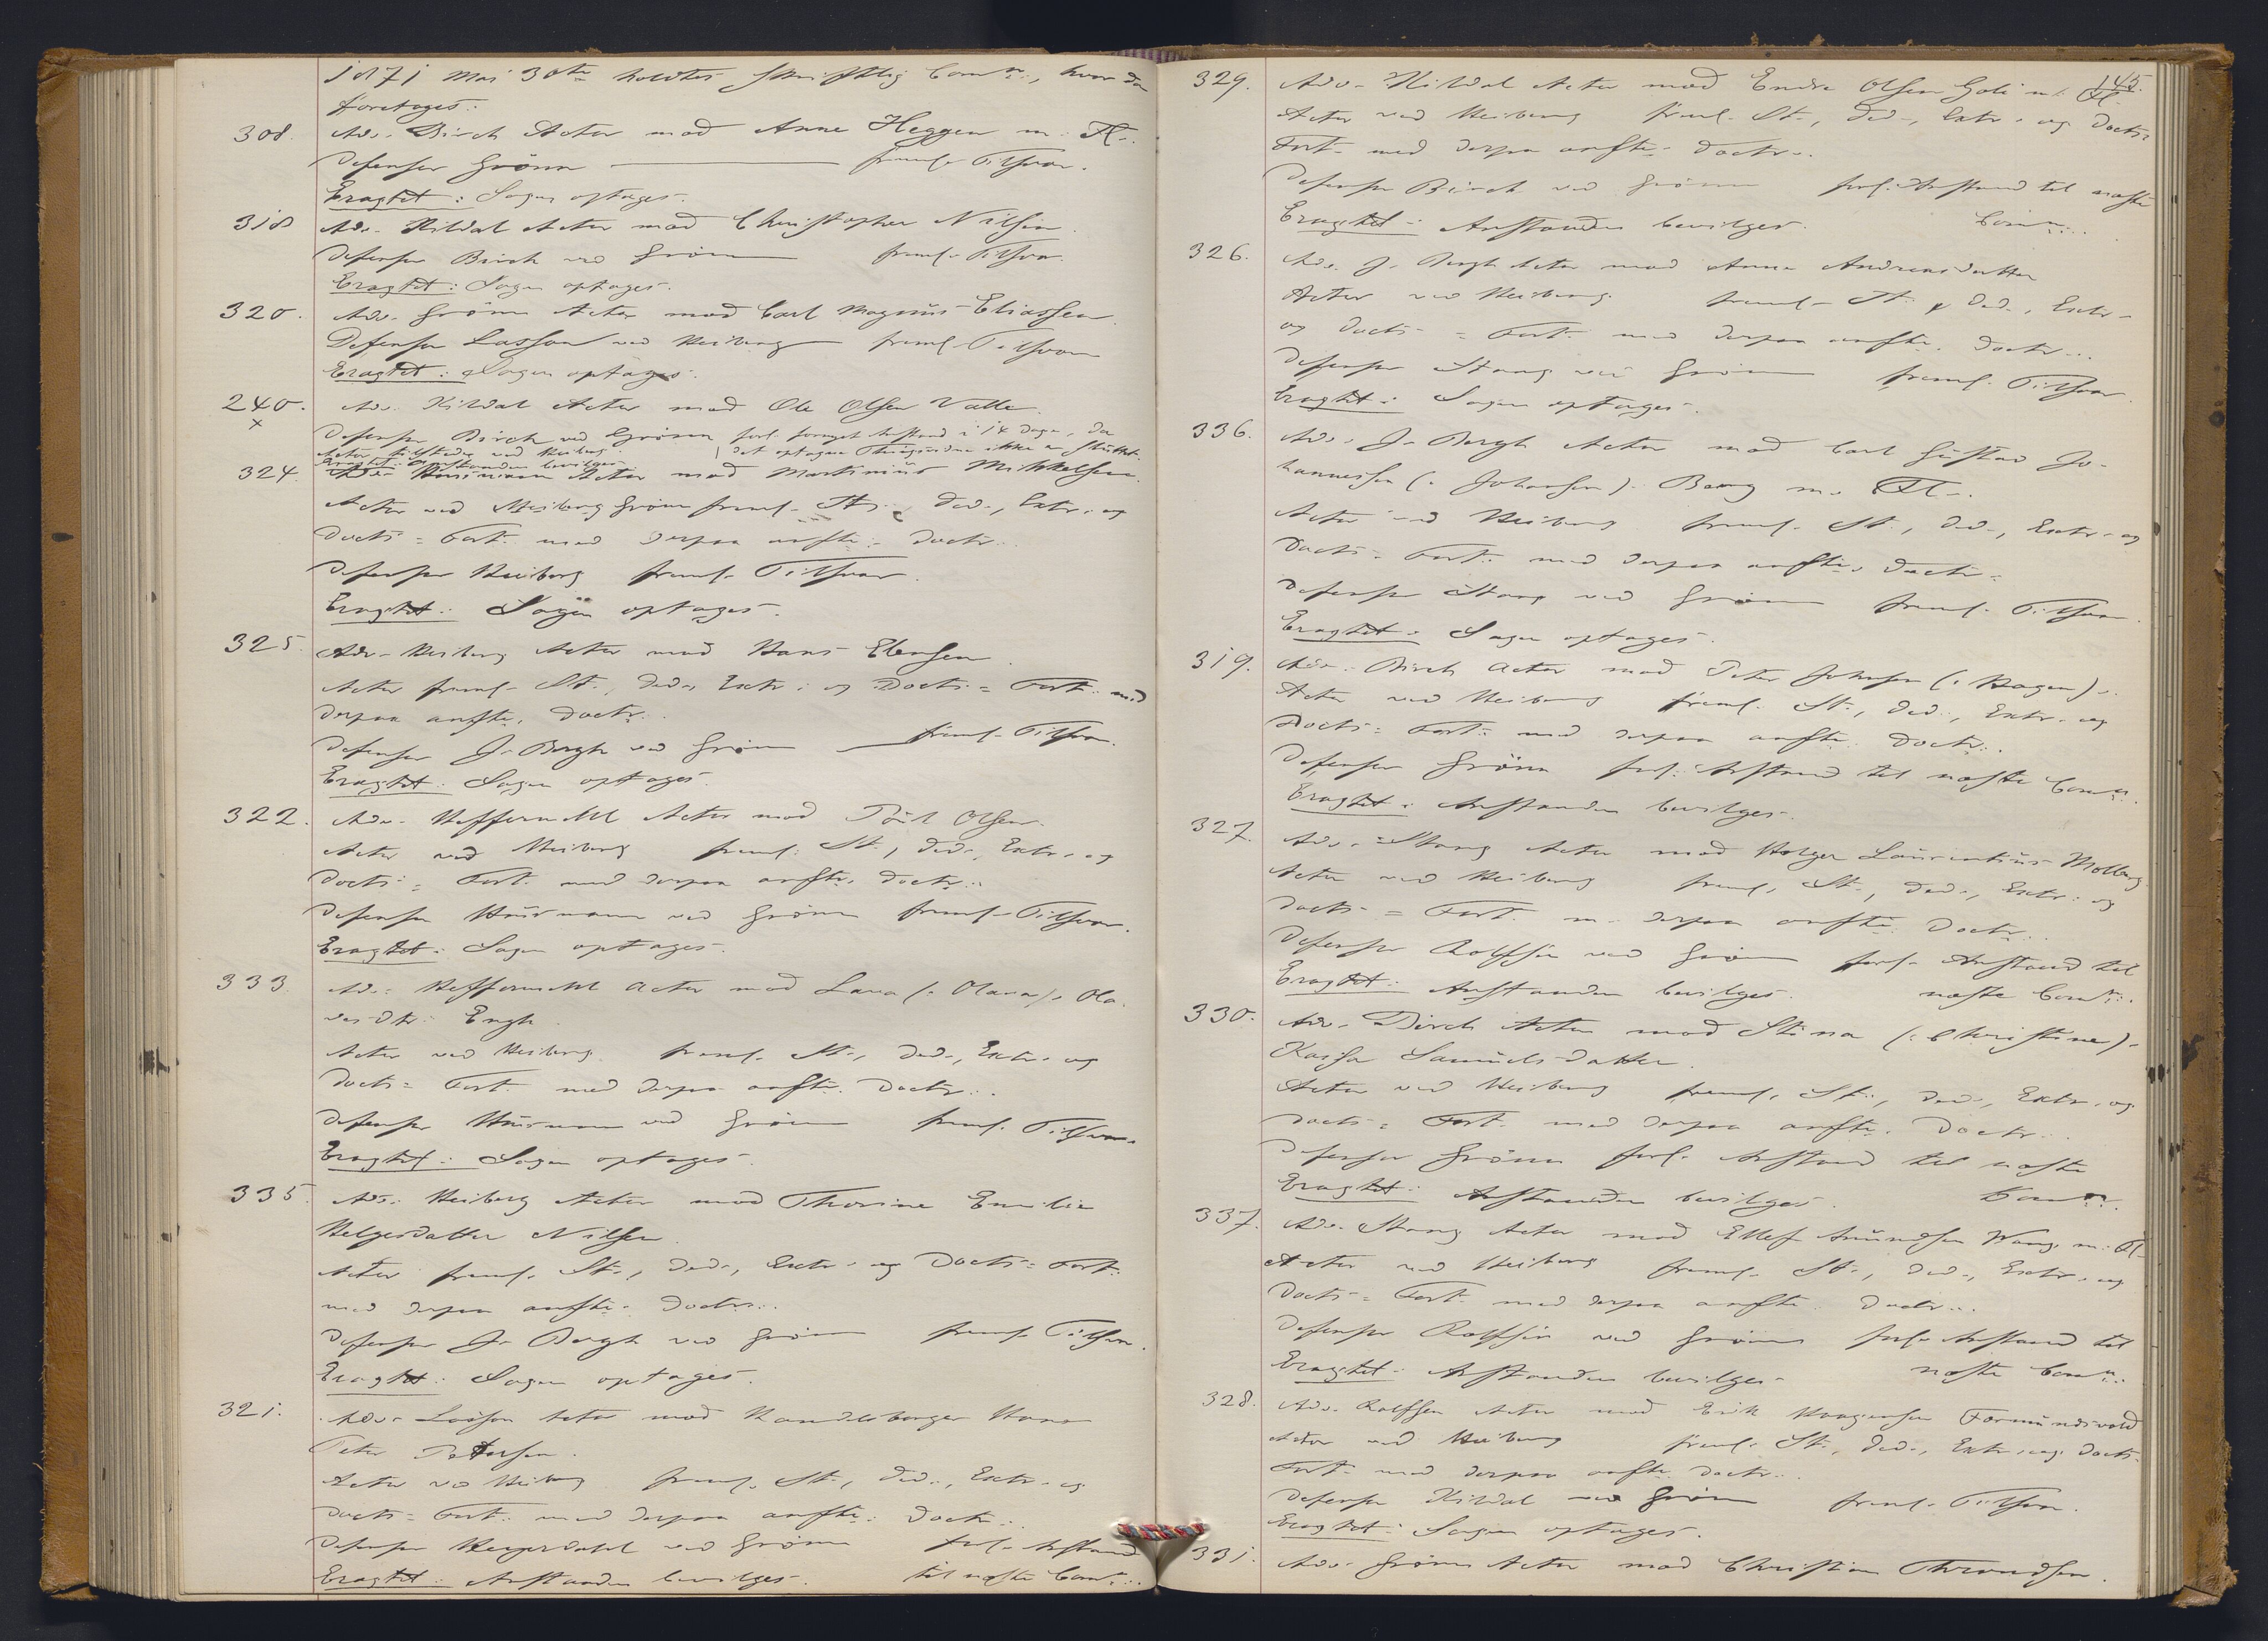 1871 Mai 30te holdtes skriftlig Comn:, hvor da
foretoges:
308. Adv. Birch Actor mod Anne Heggen m. Fl.
Defensor Grönn freml. Tilsvar.
Eragtet: Sagen optages.
318 Adv. Kildal Actor mod Christopher Nilsen.
Defensor Birch ved Grönn freml. Tilsvar.
Eragtet: Sagen optages.
320. Adv. Grönn Actor mod Carl Magnus Eliassen.
Defensor Lasson ved Heiberg freml. Tilsvar
Eragtet: Sagen optages.
240. Adv. Kildal Actor mod Ole Olsen Valle.
x
Defensor Birch ved Grönn forl. fornyet Anstand i 14 Dage, da
Actor tilstede ved Heiberg. det optagne Thingsvidne ikke er sluttet.
Eragtet: Anstanden bevilges.
324. Adv. Husmann Actor mod Martinius Mikkelsen.
Actor ved Heiberg Grönn freml. St., Ded., Extr. og
Docts = Fort. med derpaa anfte. Doctr.
Defensor Heiberg freml. Tilsvar.
Eragtet: Sagen optages.
325. Adv. Heiberg Actor mod Hans Ebensen.
Actor freml. St., Ded., Extr. og Docts. = Fort. med
derpaa anfte. Doctr.
Defensor J. Bergh ved Grönn freml. Tilsvar.
Eragtet: Sagen optages.
322. Adv. Heffermehl Actor mod Poul Olsen.
Actor ved Heiberg freml. St., Ded., Extr. og
Docts = Fort. med derpaa anfte. Doctr.
Defensor Husmann ved Grönn freml. Tilsvar.
Eragtet: Sagen optages.
333. Adv. Heffermehl Actor mod Lava (: Olava) Ola-
vesdtr. Engh.
Actor ved Heiberg freml. St., Ded., Extr. og
Docts = Fort. med derpaa anfte. Doctr.
Defensor Husmann ved Grönn freml. Tilsvar.
Eragtet: Sagen optages.
335. Adv. Heiberg Actor mod Thorine Emilie
Helgesdatter Nilsen.
Actor freml. St., Ded., Extr. og Docts = Fort.
med derpaa anfte. Doctr.
Defensor J. Bergh ved Grönn freml. Tilsvar.
Eragtet: Sagen optages.
321. Adv. Lasson Actor mod Handelsborger Hans
Peter Petersen.
Actor ved Heiberg freml. St., Ded., Extr. og
Docts = Fort. med derpaa anfte. Doctr.
Defensor ved Grönn forl. Anstand
Eragtet: Anstanden bevilges. til næste Comn.
145.
329. Adv. Kildal Actor mod Endre Olsen Goli m. Fl.
Actor ved Heiberg freml. St., Ded., Extr. og Docts=
Fort. med derpaa anfte. Doctr.
Defensor Birch ved Grönn forl. Anstand til næste
Eragtet: Anstanden bevilges. Comn.
326. Adv. J. Bergh Actor mod Anne Andreasdatter
Actor ved Heiberg freml. St., Ded., Extr.
og Docts = Fort. med derpaa anfte. Doctr.
Defensor Stang ved Grönn freml. Tilsvar.
Eragtet: Sagen optages.
336. Adv. J. Bergh Actor mod Carl Gustav Jo-
hannessen (: Johansen) Bang m. Fl.
Actor ved Heiberg freml. St., Ded., Extr. og
Docts = Fort. med derpaa anfte. Doctr.
Defensor Stang ved Grönn freml. Tilsvar.
Eragtet: Sagen optages.
319. Adv. Birch Actor mod Peter Johnsen (: Hagen).
Actor ved Heiberg freml. St., Ded., Extr. og
Docts = Fort. med derpaa anfte. Doctr.
Defensor Grönn forl. Anstand til næste Comn.
Eragtet: Anstanden bevilges.
327. Adv. Stang Actor mod Holger Laurentius Molberg.
Actor ved Heiberg freml. St., Ded., Extr. og
Docts = Fort. m. derpaa anfte. Doctr.
Defensor Rolfsen ved Grönn forl. Anstand til
Eragtet: Anstanden bevilges. næste Comn.
330. Adv. Birch Actor mod Stina (: Christine)
Kaisa Samuelsdatter.
Actor ved Heiberg freml. St., Ded., Extr. og
Docts = Fort. med derpaa anfte. Doctr.
Defensor Grönn forl. Anstand til næste
Eragtet: Anstanden bevilges. Comn.
337. Adv. Stang Actor mod Ellef Amundsen Wang m. Fl.
Actor ved Heiberg freml. St., Ded., Extr. og
Docts = Fort. med derpaa anfte. Doctr.
Defensor Rolfsen ved Grönn forl. Anstand til
Eragtet: Anstanden bevilges næste Comn.
328. Adv. Rolfsen Actor mod Erik Haagensen
Actor ved Heiberg freml. St., Ded., Extr. og Docts
Fort. med derpaa anfte. Doctr.
Defensor Kildal ved Grönn freml. Tilsvar.
Eragtet: Sagen optages.
331. Adv. Grönn Actor mod Christian Throndsen.